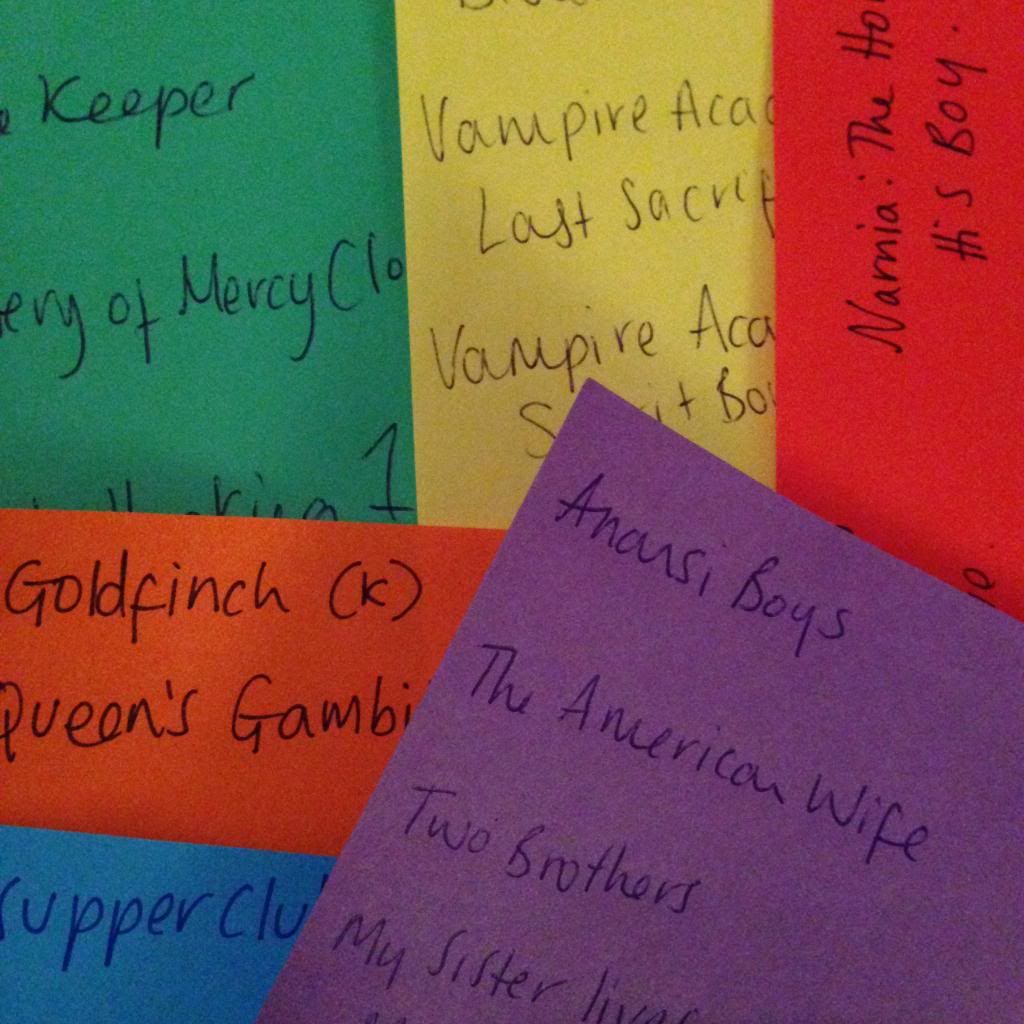 Keeper
ery of Mercy Clo
1
Vampire Acad
Last Sacrif
Vampire Aca
Narnia: The Ho
His Boy.
Goldfinch (K)
Queen's Gambi
Supper Clu
Anansi Boys
The American Wife
Two Brothers
My Sister lives